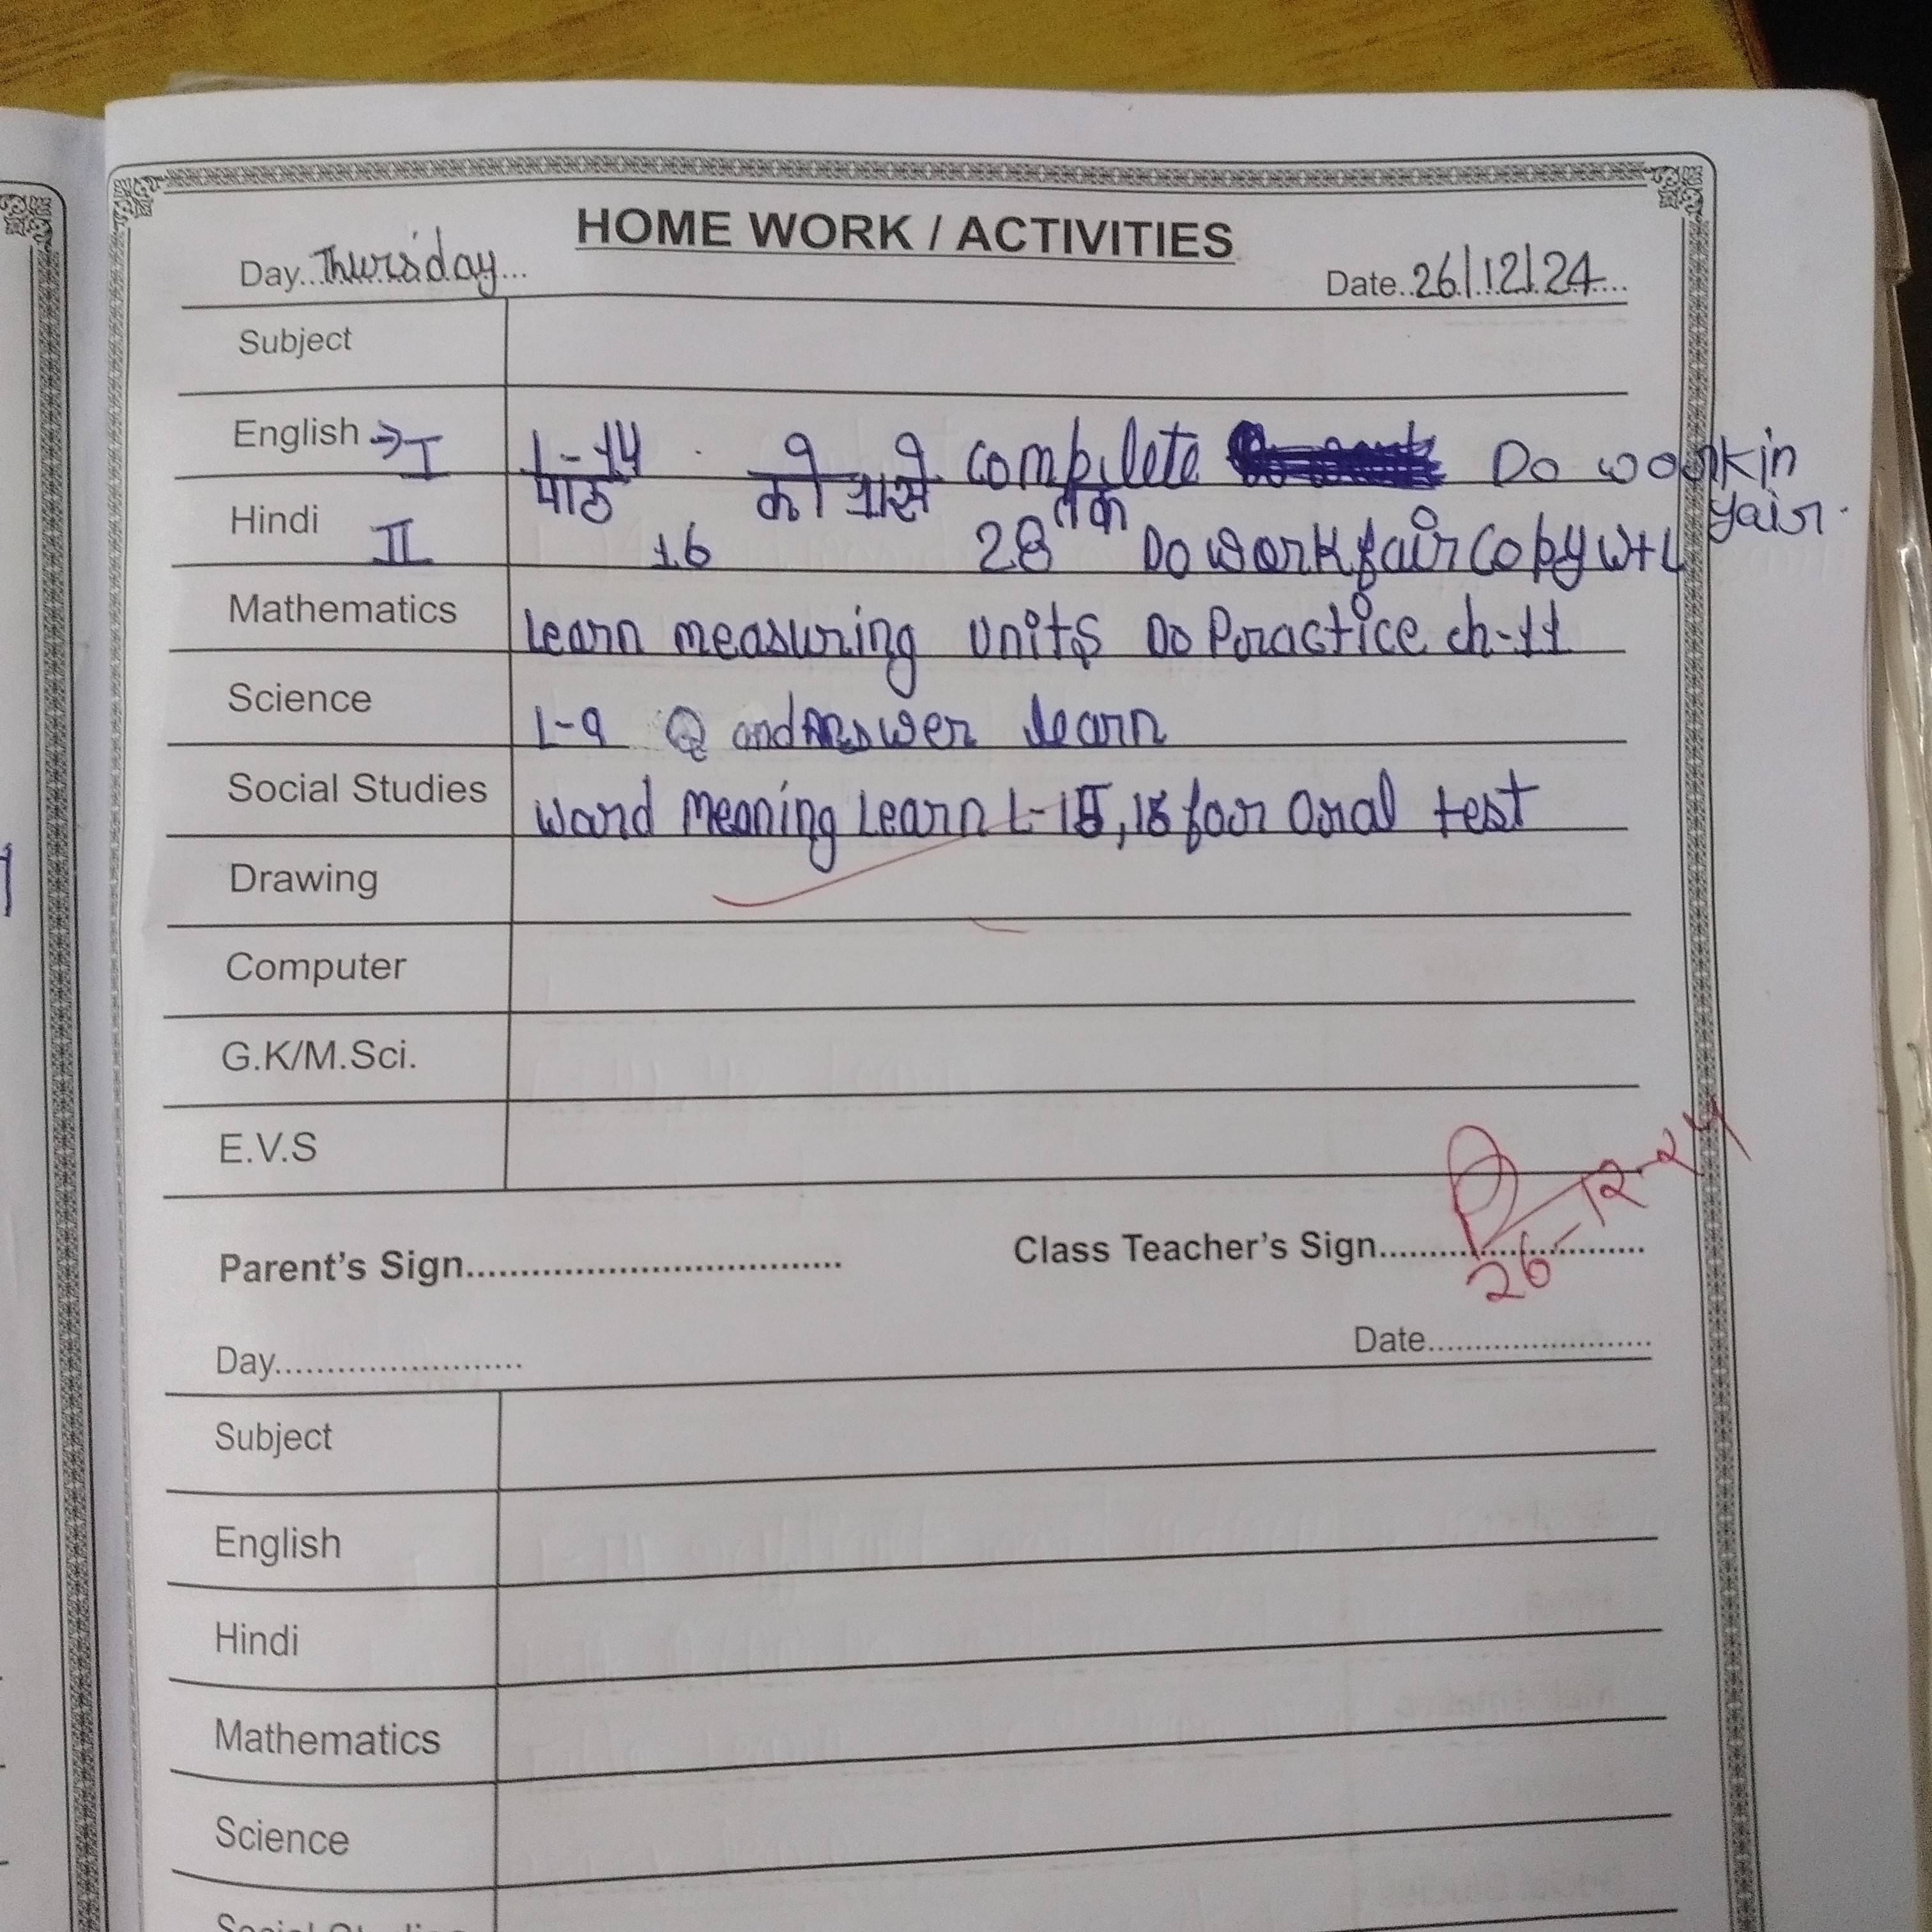 HOME WORK / ACTIVITIES
Day...Thursday... Date..26/12/24....
Subject
English → I L-14 . Q Q complete Do work in fair.
Hindi II पाठ 16 28 तक Do work fair copy W+L
Mathematics Learn measuring Units Do Practice ch-11
Science L-9 Q and Answer learn
Social Studies Word Meaning Learn L-15, 16 for Oral test
Drawing
Computer
G.K/M.Sci.
E.V.S
Parent's Sign.................................... Class Teacher's Sign...........................
26-12-24
Day........................ Date........................
Subject
English
Hindi
Mathematics
Science
Social Studies